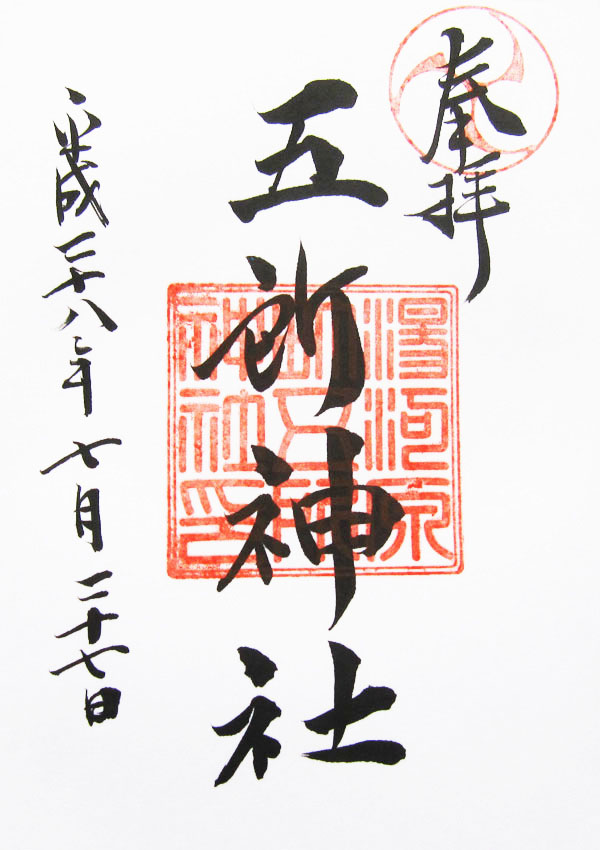 奉拝
五所神社
湯河原
神社印
平成二十八年七月二十七日